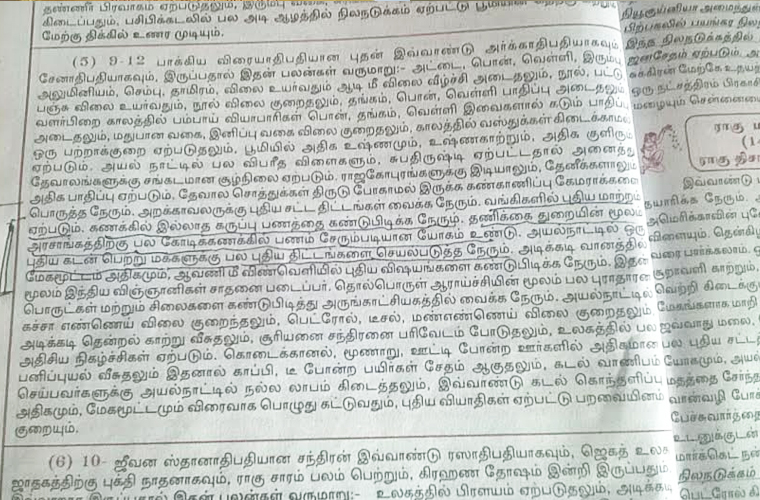 தண்ணீர் பிரவாகம் ஏற்படுதலும்,
கிடைப்பதும், பசிபிக்கடலில் பல அடி ஆழத்தில் நிலநடுக்கம் ஏற்பட்டு
மேற்கு திக்கில் உணர முடியும்.
(5) 9-12 பாக்கிய விரையாதிபதியான புதன் இவ்வாண்டு அர்க்காதிபதியாகவும்
சேனாதிபதியாகவும், இருப்பதால் இதன் பலன்கள் வருமாறு:- அட்டை, பொன், வெள்ளி, இரும்பு
அலுமினியம், செம்பு, தாமிரம், விலை உயர்வதும் ஆடி மீ விலை வீழ்ச்சி அடைதலும், நூல், பட்டு
பஞ்சு விலை உயர்வதும், நூல் விலை குறைதலும், தங்கம், பொன், வெள்ளி பாதிப்பு அடைதலும்
வளர்பிறை காலத்தில் பம்பாய் வியாபாரிகள் பொன், தங்கம், வெள்ளி இவைகளால் கடும் பாதிப்பு
அடைதலும், மதுபான வகை, இனிப்பு வகை விலை குறைதலும், காலத்தில் வஸ்துக்கள் கிடைக்காமல்
ஒரு பற்றாக்குறை ஏற்படுதலும், பூமியில் அதிக உஷ்ணமும், உஷ்ணகாற்றும், அதிக குளிரும்
ஏற்படும். அயல் நாட்டில் பல விபரீத விளைகளும், சுபதிருஷ்டி ஏற்பட்டதால் அனைத்து
தேவாலங்களுக்கு சங்கடமான சூழ்நிலை ஏற்படும். ராஜகோபுரங்களுக்கு இடியாலும், தேனீக்களாலும்
அதிக பாதிப்பு ஏற்படும். தேவால சொத்துக்கள் திருடு போகாமல் இருக்க கண்காணிப்பு கேமராக்களை
பொருத்த நேரும். அறக்காவலருக்கு புதிய சட்ட திட்டங்கள் வைக்க நேரும். வங்கிகளில் புதிய மாற்றம்
ஏற்படும். கணக்கில் இல்லாத கருப்பு பணத்தை கண்டுபிடிக்க நேரும். தணிக்கை துறையின் மூலம்
அரசாங்கத்திற்கு பல கோடிக்கணக்கில் பணம் சேரும்படியான யோகம் உண்டு. அயல்நாட்டில் ஒரு
புதிய கடன் பெற்று மக்களுக்கு பல புதிய திட்டங்களை செயல்படுத்த நேரும், அடிக்கடி வானத்தில்
மேகமூட்டம் அதிகமும், ஆவணி மீ விண்வெளியில் புதிய விஷயங்களை கண்டுபிடிக்க நேரும். இதன்
மூலம் இந்திய விஞ்ஞானிகள் சாதனை படைப்பர். தொல்பொருள் ஆராய்ச்சியின் மூலம் பல புராதான
பொருட்கள் மற்றும் சிலைகளை கண்டுபிடித்து அருங்காட்சியகத்தில் வைக்க நேரும். அயல்நாட்டில்
கச்சா எண்ணெய் விலை குறைந்தலும், பெட்ரோல், டீசல், மண்எண்ணெய் விலை குறைதலும்
அடிக்கடி தென்றல் காற்று வீசுதலும், சூரியனை சந்திரனை பரிவேடம் போடுதலும், உலகத்தில் பல
அதிசிய நிகழ்ச்சிகள் ஏற்படும். கொடைக்கானல், மூணாறு, ஊட்டி போன்ற ஊர்களில் அதிகமான
பனிப்புயல் வீசுதலும் இதனால் காப்பி, டீ போன்ற பயிர்கள் சேதம் ஆகுதலும், கடல் வாணிபம்
செய்பவர்களுக்கு அயல்நாட்டில் நல்ல லாபம் கிடைத்தலும், இவ்வாண்டு கடல் கொந்தளிப்பு
அதிகமும், மேகமூட்டமும் விரைவாக பொழுது கட்டுவதும், புதிய வியாதிகள் ஏற்பட்டு பறவையினம்
குறையும்.
(6) 10- ஜீவன ஸ்தானாதிபதியான சந்திரன் இவ்வாண்டு ரஸாதிபதியாகவும், ஜெகத் உலக
ஜாதகத்திற்கு புக்தி நாதனாகவும், ராகு சாரம் பலம் பெற்றும், கிரஹண தோஷம் இன்றி இருப்பதும்
இவ்வாறு இருப்பதால் இதன் பலன்கள் வருமாறு:- உலகத்தில் பிரளயம் ஏற்படுதலும், அடிக்கடி
பிற்பகலில் பயங்கர
இந்த நிலநடுக்கத்தில்
ஜனசேதம் ஏற்படும்.
சுக்கிரன் மேற்கே
ஒரு நட்சத்திரம்
மழையும் சென்னை
ராகு
ராகு திசா
இவ்வாண்டு
தயாரிக்க நேரும்.
அமெரிக்காவின்
விளையும்.
வரை பார்க்கலாம்.
சூறாவளி காற்றும்,
வெற்றி கிடைக்கும்
மேகங்களாக மாறி
ஜவ்வாது மலை,
பல புதிய சட்ட
யோகமும்,
மதத்தை சேர்ந்த
வான்வழி போக்
பேச்சுவார்த்தை
உடனுக்குடன்
மார்க்கெட்
நிலநடுக்கம்
பெட்ரோல்